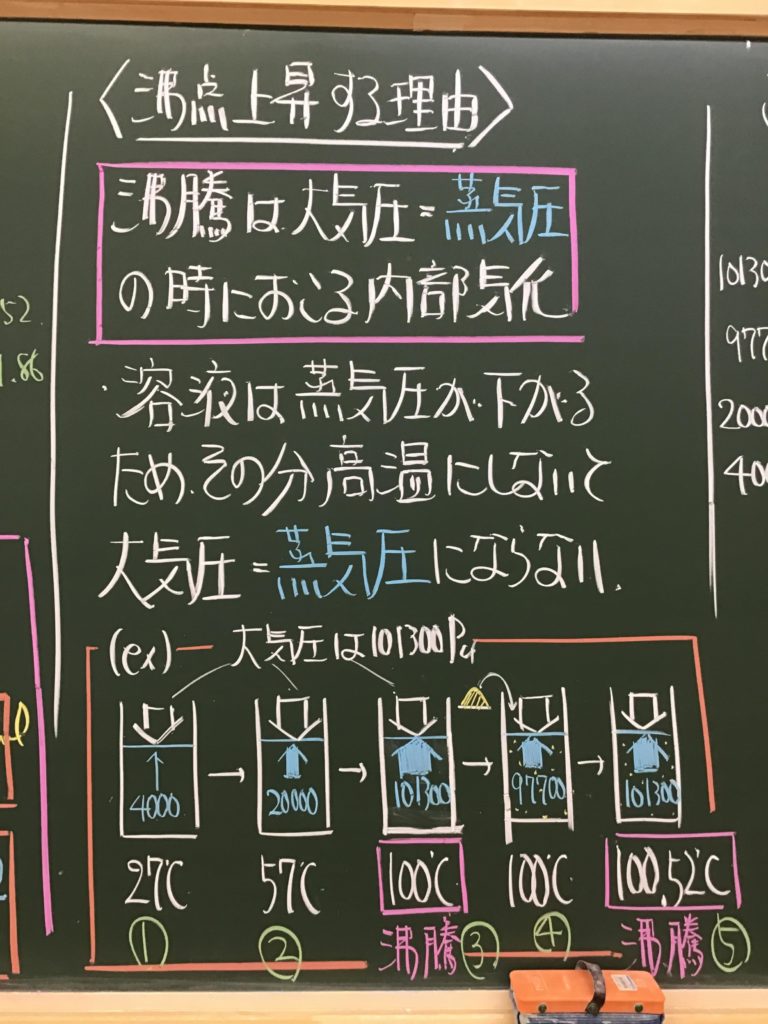 〈沸点上昇する理由〉
沸騰は大気圧=蒸気圧
の時におこる内部気化
・溶液は蒸気圧が下がる
ため、その分高温にしないと
大気圧=蒸気圧にならない。
(ex) 大気圧は101300Pa
4000 → 20000 → 101300 → 97700 → 101300
27℃ 57℃ 100℃ 100℃ 100.52℃
① ② 沸騰③ ④ 沸騰⑤
52
1.86
10130
977
2000
400